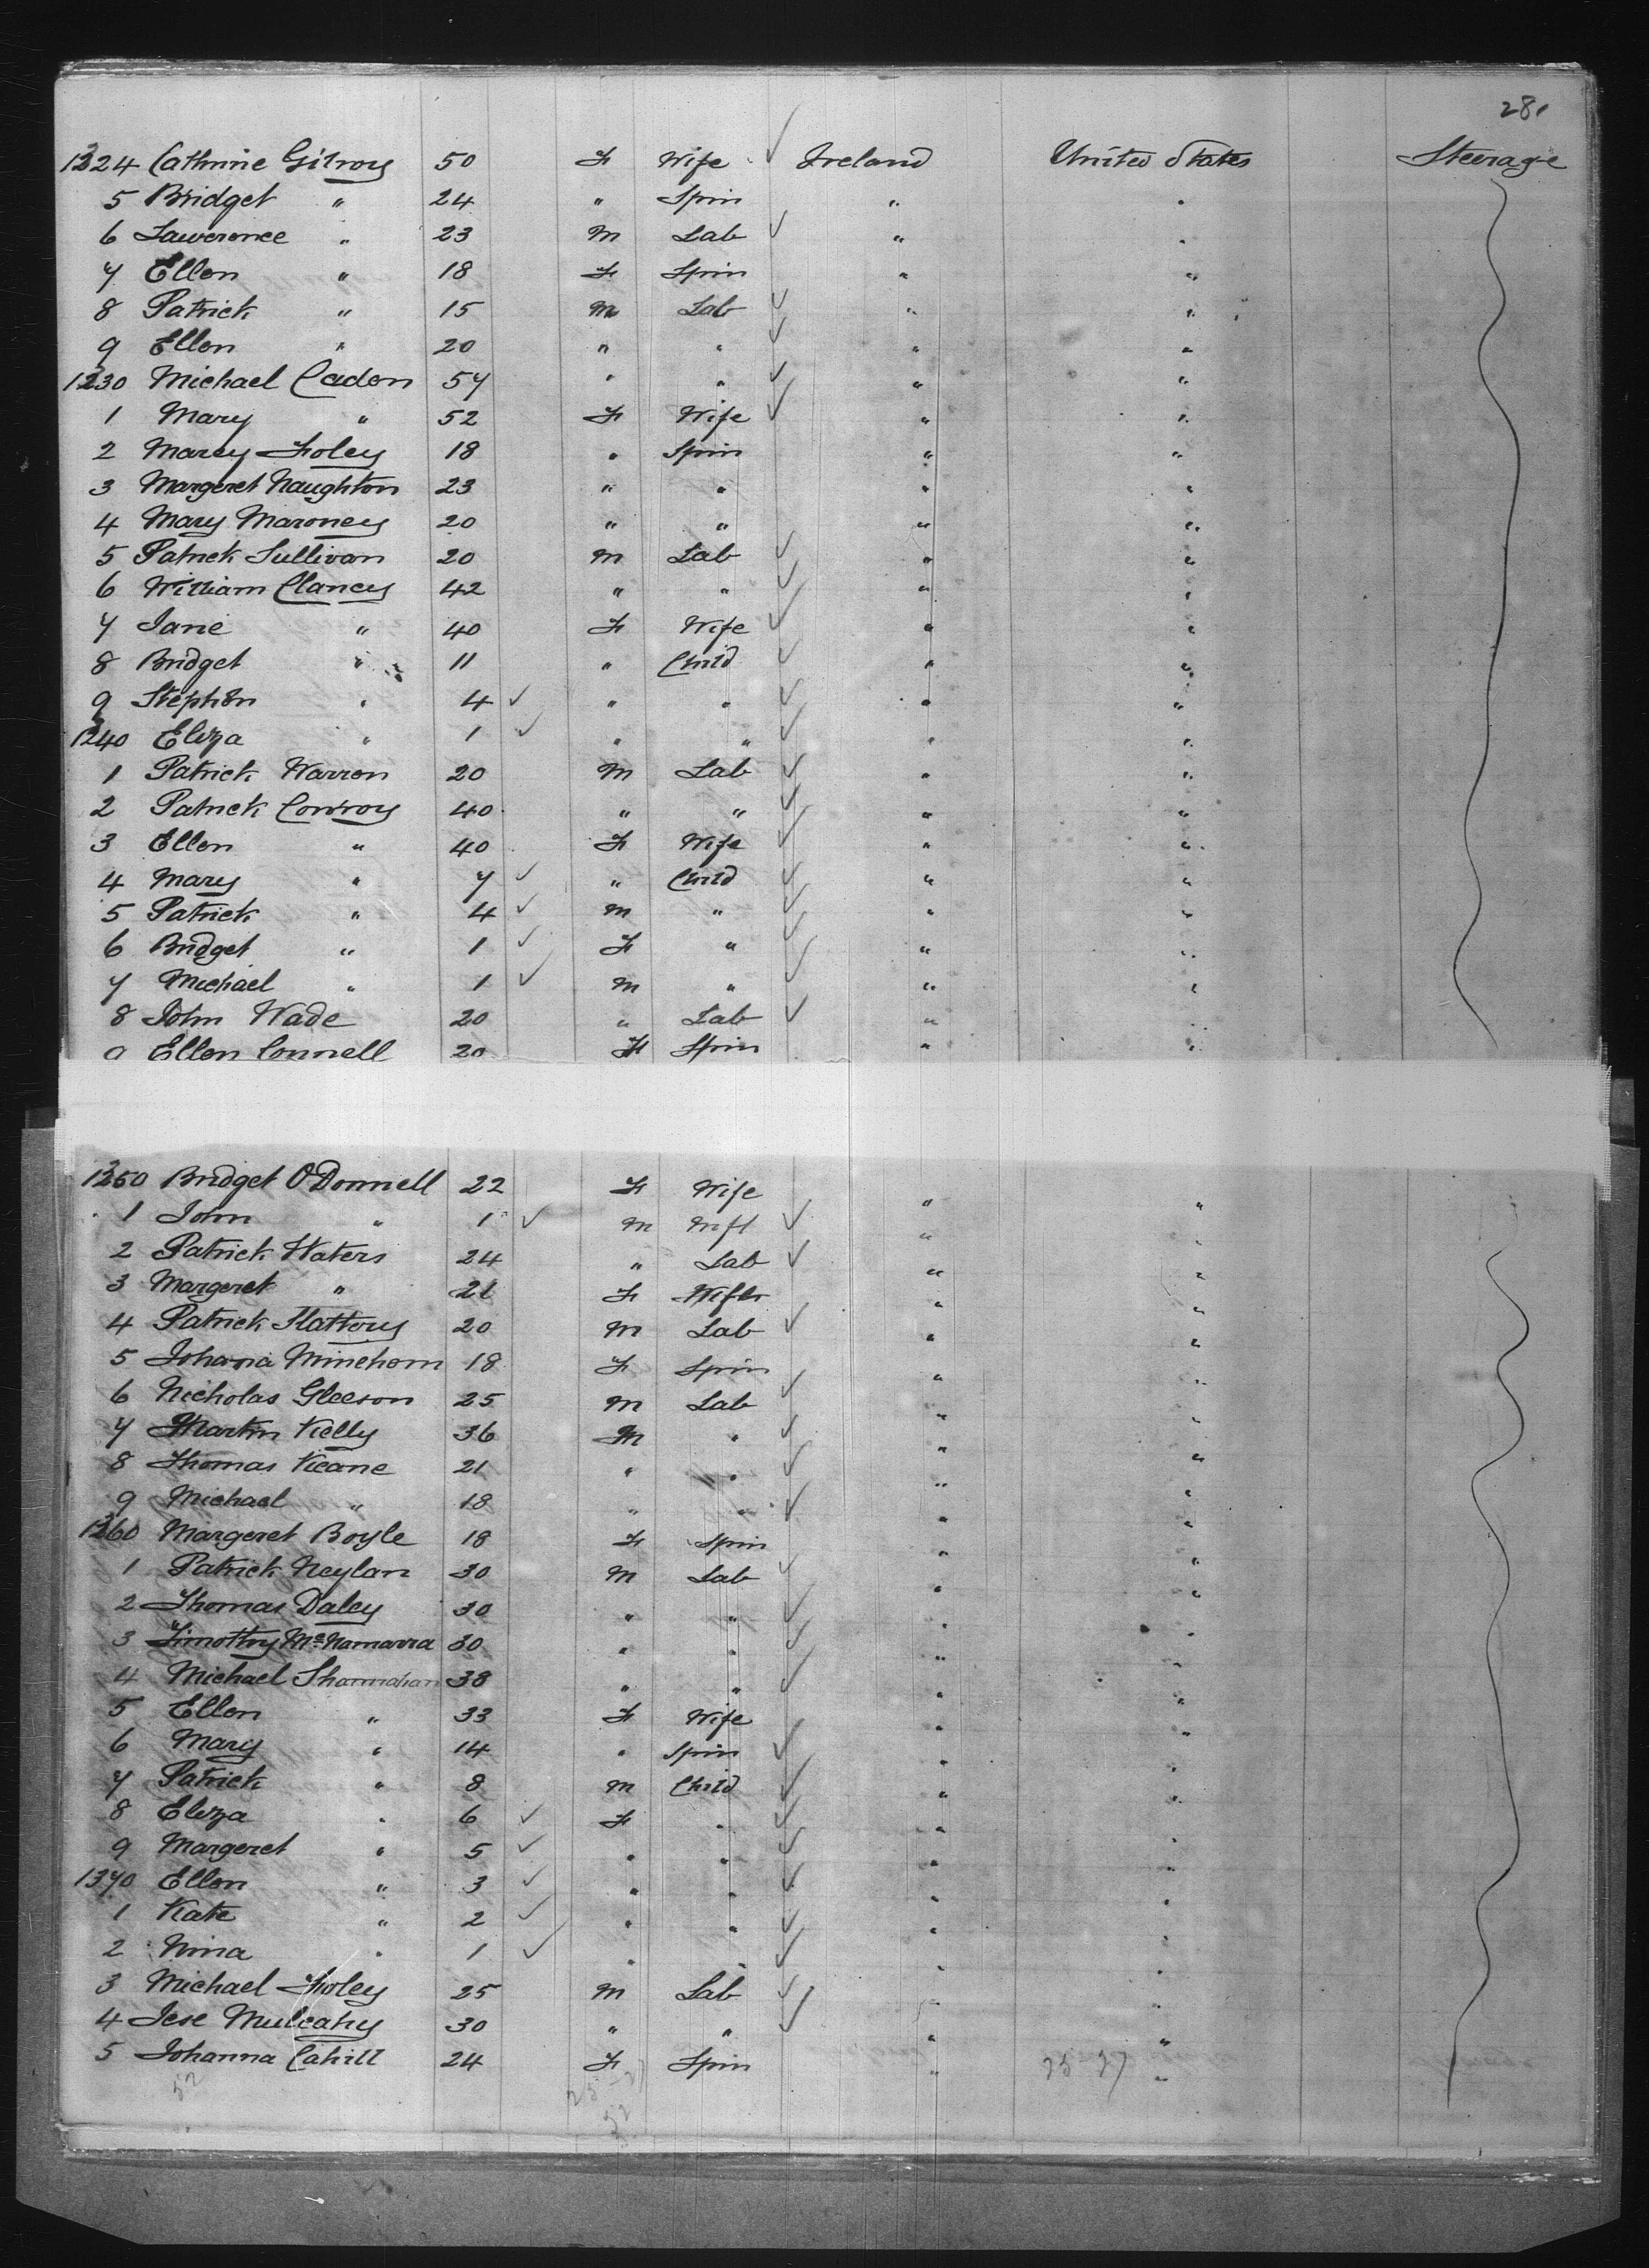 281
1324 Cathrine Gilroy 50 F Wife ✓ Ireland United States Steerage
5 Bridget " 24 " Spin " "
6 Lawerence " 23 M Lab ✓ " "
7 Ellen " 18 F Spin " "
8 Patrick " 15 M Lab ✓ " "
9 Ellen " 20 " " ✓ " "
1330 Michael Cadon 57 " " ✓ " "
1 Mary " 52 F Wife ✓ " "
2 Marey Foley 18 " Spin " "
3 Margeret Naughton 23 " " " "
4 Mary Maroney 20 " " " "
5 Patrick Sullivan 20 M Lab ✓ " "
6 William Clancy 42 " " ✓ " "
7 Jane " 40 F Wife ✓ " "
8 Bridget " 11 " Child ✓ " "
9 Stephen " 4 ✓ " " ✓ " "
1340 Eliza " 1 ✓ " " ✓ " "
1 Patrick Warren 20 M Lab ✓ " "
2 Patrick Conroy 40 " " ✓ " "
3 Ellen " 40 F Wife ✓ " "
4 Mary " 7 ✓ " Child ✓ " "
5 Patrick " 4 ✓ M " ✓ " "
6 Bridget " 1 ✓ F " ✓ " "
7 Michael " 1 ✓ M " ✓ " "
8 John Wade 20 " Lab ✓ " "
9 Ellen Connell 20 F Spin " "
1350 Bridget O'Donnell 22 F Wife " "
1 John " 1 ✓ M Inft ✓ " "
2 Patrick Waters 24 " Lab ✓ " "
3 Margeret " 21 F Wife " "
4 Patrick Slattery 20 M Lab ✓ " "
5 Johana Minehom 18 F Spin " "
6 Nicholas Gleeson 25 M Lab ✓ " "
7 Martin Kelly 36 M " ✓ " "
8 Thomas Keane 21 " " ✓ " "
9 Michael " 18 " " ✓ " "
1360 Margeret Boyle 18 F Spin " "
1 Patrick Neylan 30 M Lab ✓ " "
2 Thomas Daley 30 " " ✓ " "
3 Timothy McNamarra 30 " " ✓ " "
4 Michael Shannahan 38 " " ✓ " "
5 Ellen " 33 F Wife " "
6 Mary " 14 " Spin ✓ " "
7 Patrick " 8 M Child ✓ " "
8 Eliza " 6 ✓ F " ✓ " "
9 Margeret " 5 ✓ " " ✓ " "
1370 Ellen " 3 ✓ " " ✓ " "
1 Kate " 2 ✓ " " ✓ " "
2 Nina " 1 ✓ " " ✓ " "
3 Michael Foley 25 M Lab ✓ " "
4 Jese Mulcahy 30 " " ✓ " "
5 Johanna Cahill 24 F Spin " "
52 25-27 25-27
52